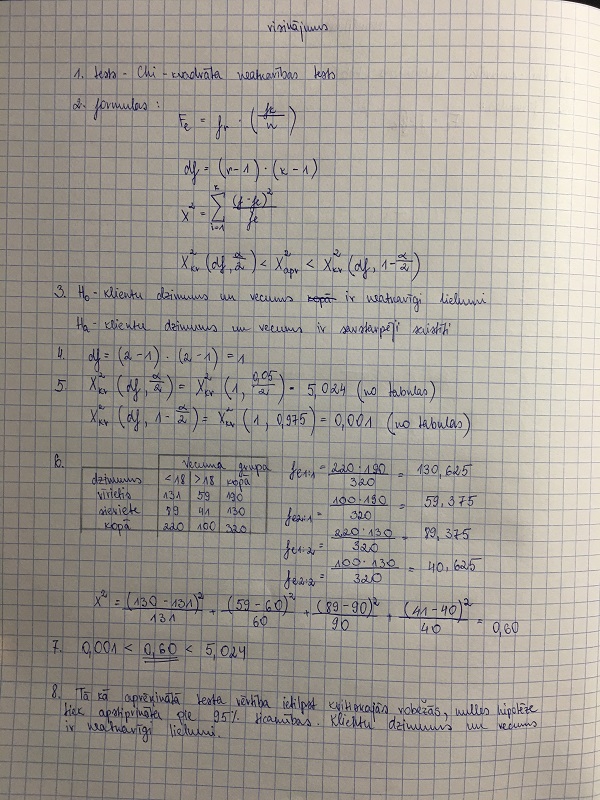 risinājums
1. tests - Chi - kvadrāta neatkarības tests
2. formulas :
Fe = fr · (fk/n)
df = (r-1) · (k-1)
X² = Σ i=1 k (f-fe)²/fe
X²kr (df, α/2) < X²apr < X²kr (df, 1-α/2)
3. H₀ - klientu dzimums un vecums ir neatkarīgi lielumi
Ha - klientu dzimums un vecums ir savstarpēji saistīti
4. df = (2-1) · (2-1) = 1
5. X²kr (df, α/2) = X²kr (1, 0,05/2) = 5,024 (no tabulas)
X²kr (df, 1-α/2) = X²kr (1, 0,975) = 0,001 (no tabulas)
6. vecuma grupa
dzimums <18 >18 kopā
vīrietis 131 59 190
sieviete 89 41 130
kopā 220 100 320
fe1·1 = 220·190/320 = 130,625
fe2·1 = 100·190/320 = 59,375
fe1·2 = 220·130/320 = 89,375
fe2·2 = 100·130/320 = 40,625
X² = (130-131)²/131 + (59-60)²/60 + (89-90)²/90 + (41-40)²/40 = 0,60
7. 0,001 < 0,60 < 5,024
8. Tā kā aprēķinātā testa vērtība ietilpst kritiskajās robežās, nulles hipotēze
tiek apstiprināta pie 95% ticamības. Klientu dzimums un vecums
ir neatkarīgi lielumi.